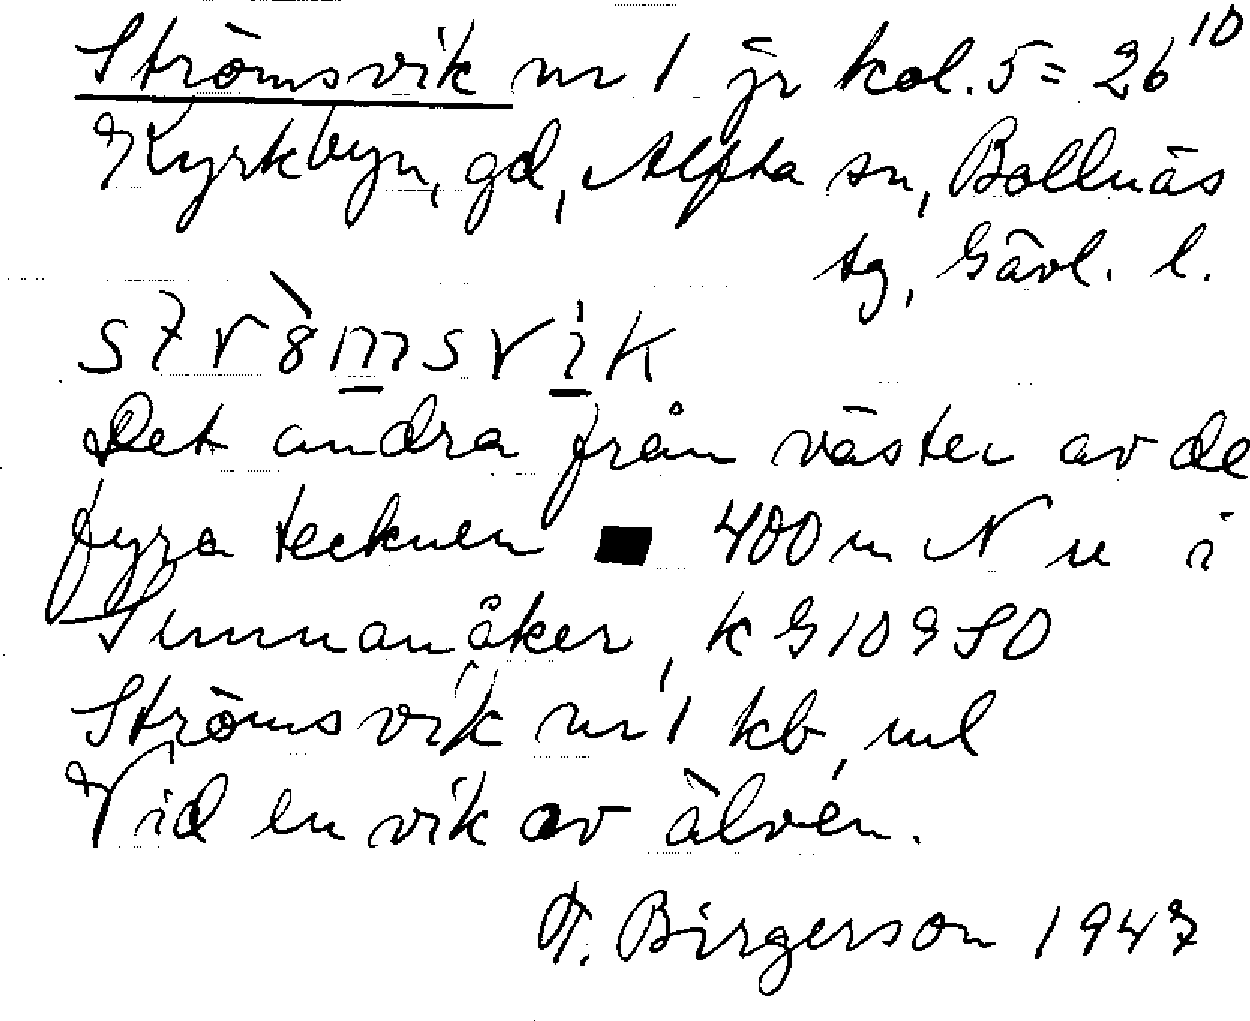 Strömsvik nr 1 jr kol. 5 = 26¹⁰
Kyrkbyn, gd, Alfta sn, Bollnäs
tg, Gävl. l.
Det andra från väster av de
fyra tecknen ■ 400 m N u i
Sunnanåker, k G 10 9 S0
Strömsvik nr 1 kb, ml
Vid en vik av älven.
F. Birgerson 1947